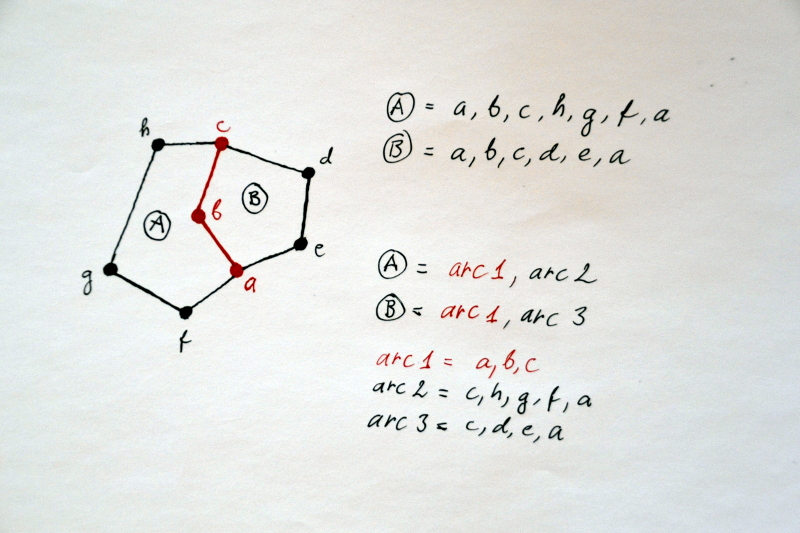 h
c
d
Ⓐ
Ⓑ
b
g
a
e
f
Ⓐ = a, b, c, h, g, f, a
Ⓑ = a, b, c, d, e, a
Ⓐ = arc 1, arc 2
Ⓑ = arc 1, arc 3
arc 1 = a, b, c
arc 2 = c, h, g, f, a
arc 3 = c, d, e, a